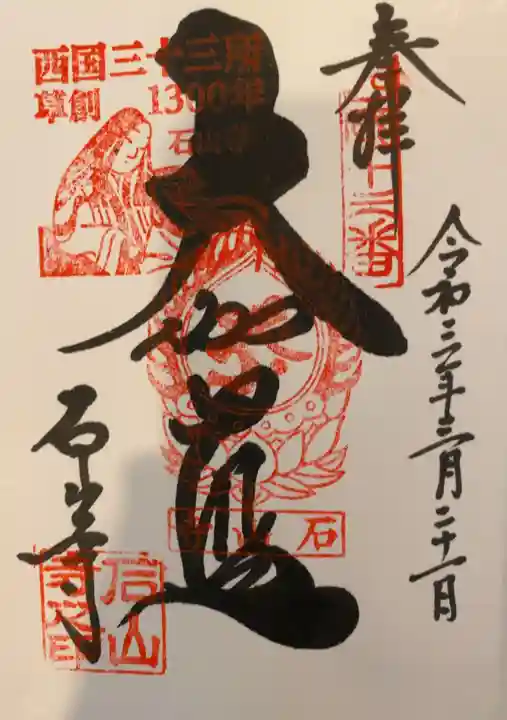 奉拝
西国十三番
令和三年三月二十一日
大伽藍
西国三十三所
草創 1300年
石山寺
石山寺
石山寺
石山寺印